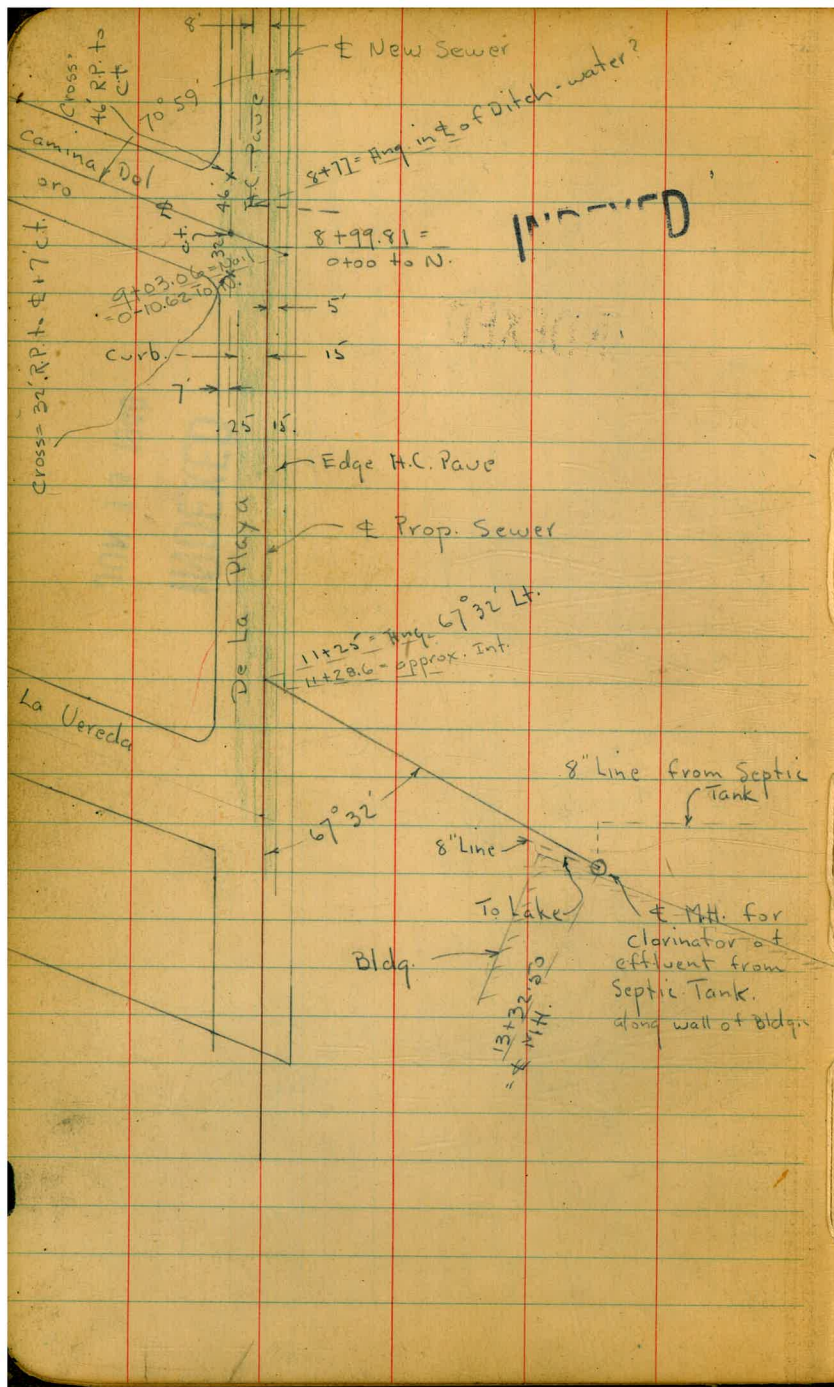 8'
℄ New Sewer
Cross:
46' R.P. to
c.t.
70° 59'
H.C. Pave
8+77 = Ang. in ℄ of Ditch - water?
Camina Del
oro
46'
℄
c.t.
32'
8+99.81 =
0+00 to N.
9+03.06 =
= 0-10.62 To
5'
Curb.
15'
7'
25 15
Cross = 32' R.P. to ℄ + 7' c.t.
Edge H.C. Pave
De La Playa
℄ Prop. Sewer
11+25 = Ang. 67° 32' Lt.
11+28.6 = approx. Int.
La Vereda
67° 32'
8" Line from Septic
Tank
8" Line
To Lake
℄ M.H. for
clorinator of
effluent from
Septic Tank.
along wall of Bldg.
Bldg.
13+32.50
= ℄ M.H.